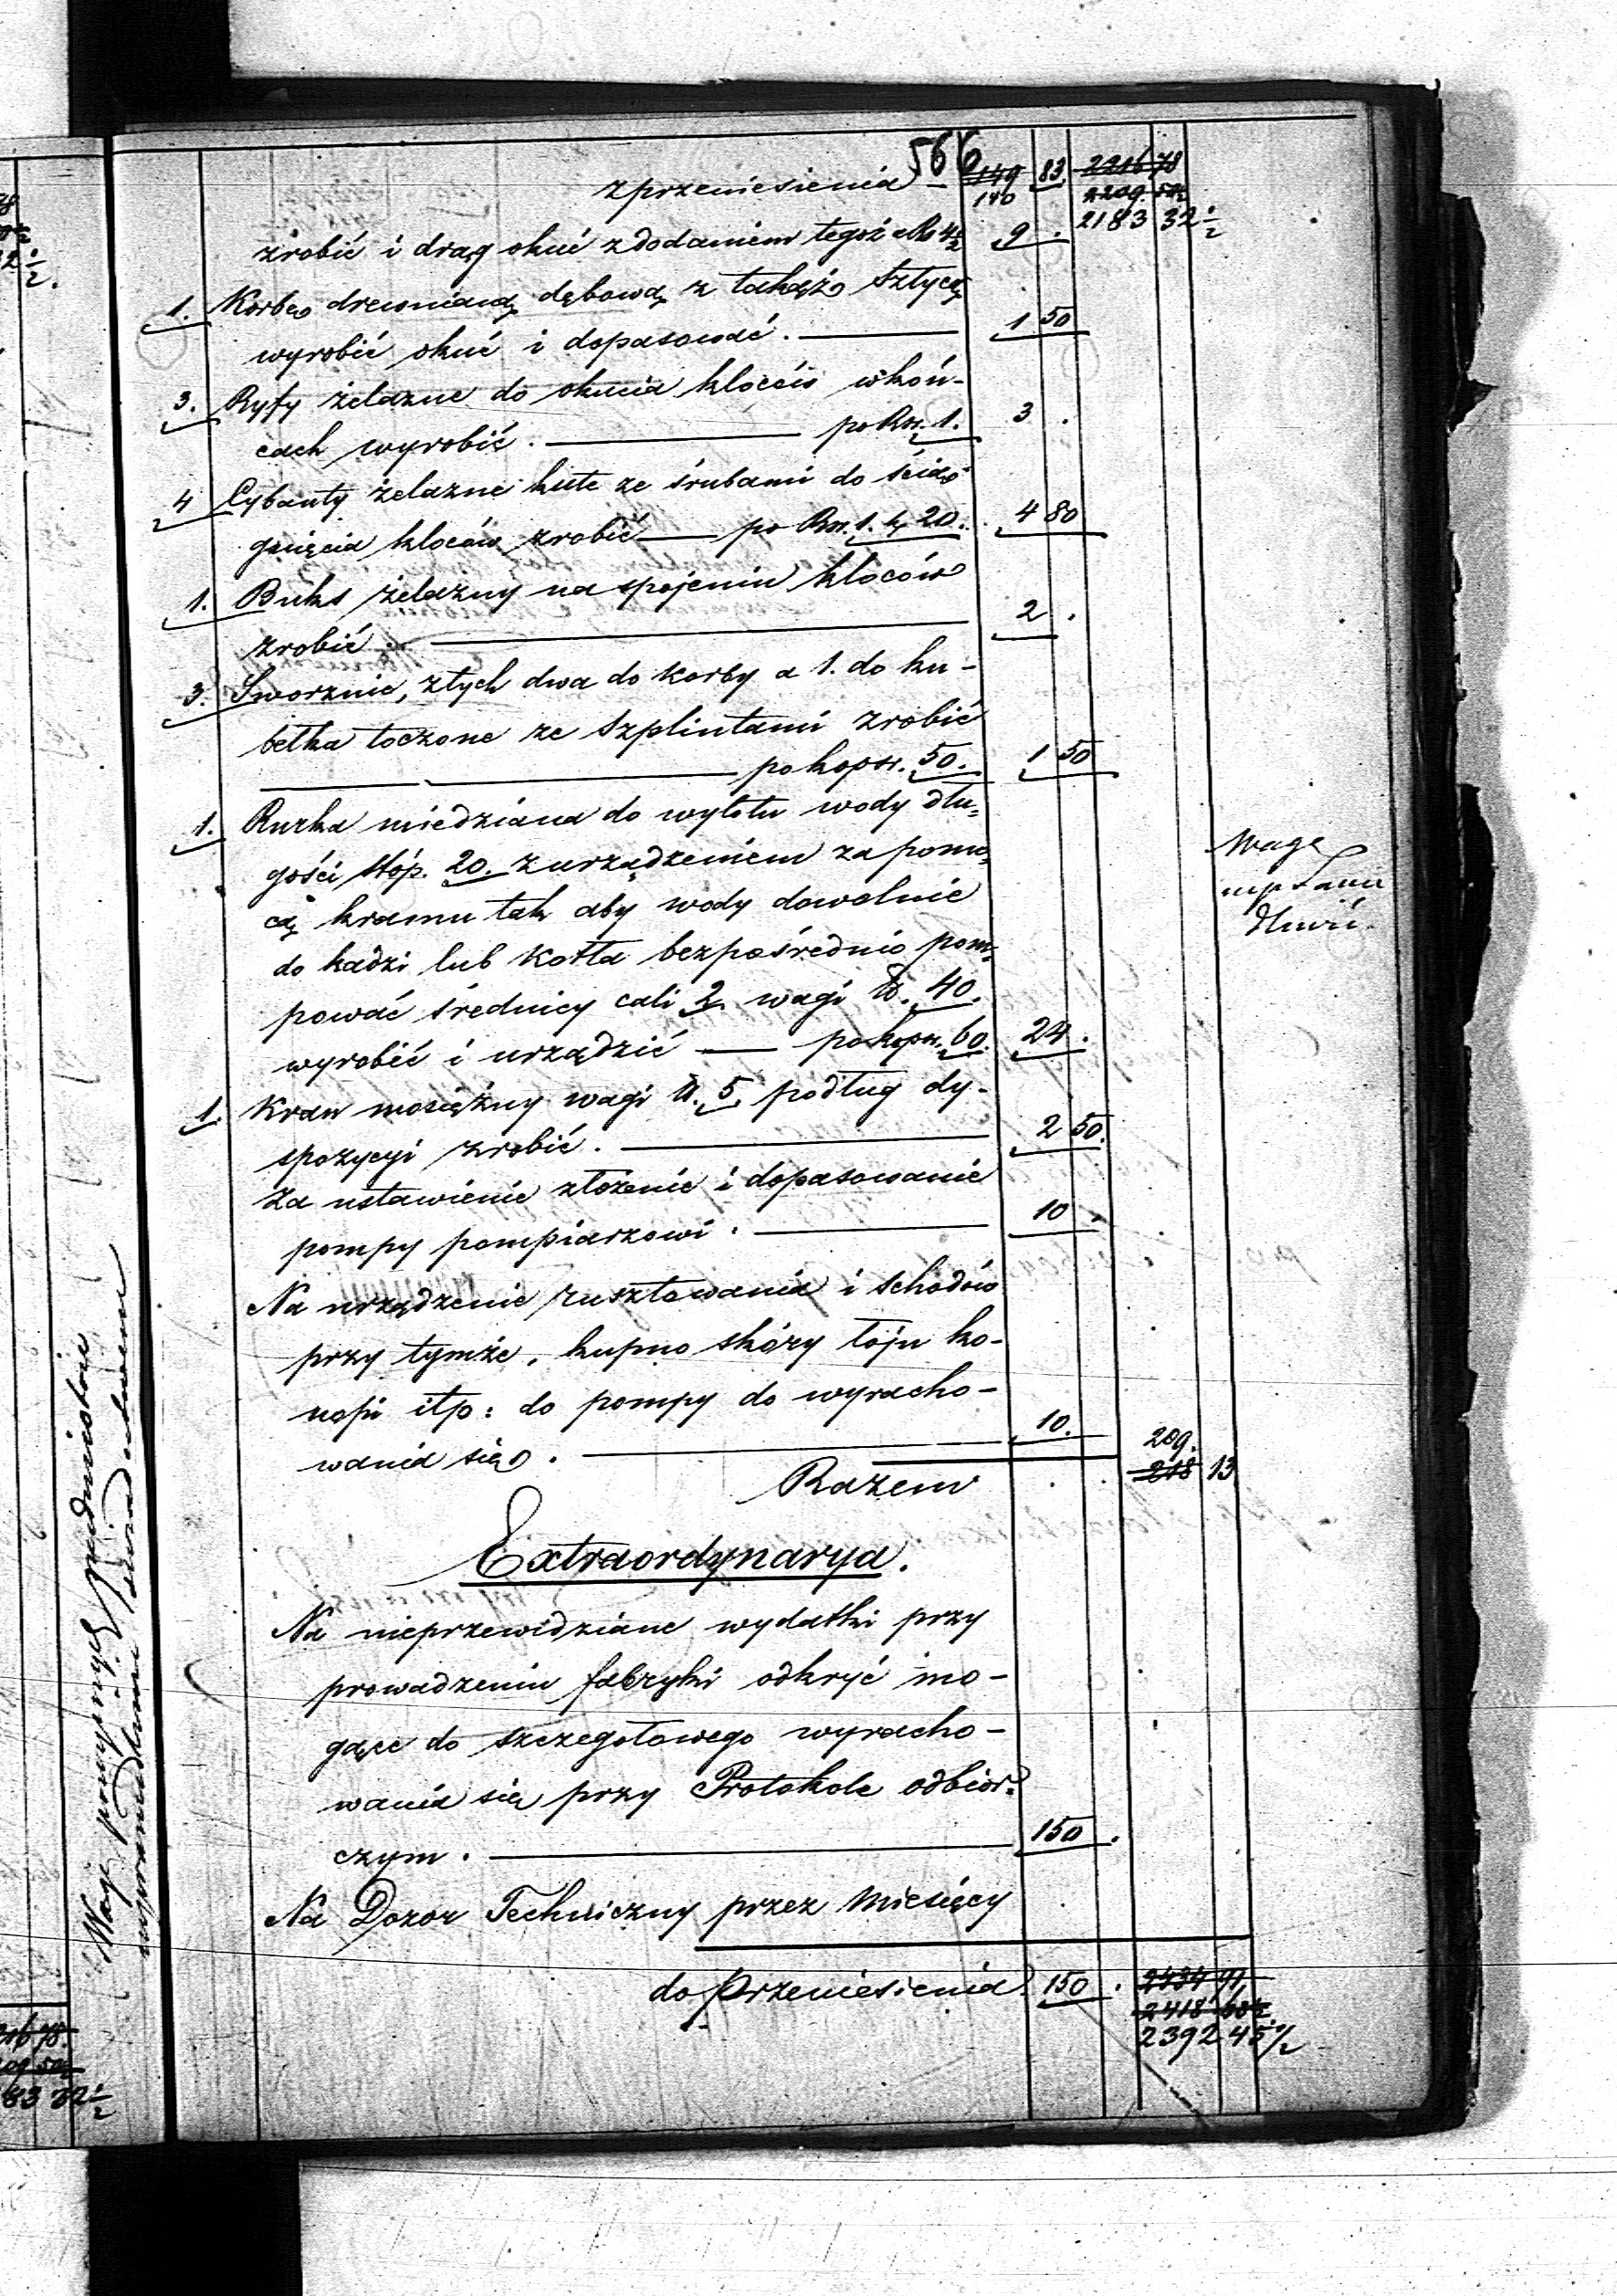 566
z przeniesienia — 149 83. 2216 78
140 2209. 50½
2183 32½
zrobić i drąg okuć z dodaniem tegoż a Rs 4½ 9 .
1. Korbę drewnianą dębową z takąż sztycą
wyrobić okuć i dopasować. 1 50
3. Ryfy żelazne do okucia kloców w koń-
cach wyrobić. po Rsr. 1. 3 .
4 Cybanty żelazne kute ze śrubami do ścią-
gnięcia kloców zrobić po Rsr. 1. k. 20. 4 80
1. Buks żelazny na spojeniu kloców
zrobić. 2 .
3. Sworznie, z tych dwa do korby a 1. do ku-
bełka toczone ze szplintami zrobić
po kopsr. 50. 1 50
1. Rurka miedziana do wylotu wody dłu-
gości stóp. 20. z urządzeniem za pomo-
cą kranu tak aby wody dowolnie
do kadzi lub kotła bezpośrednio pom-
pować średnicy cali 2 wagi ℔. 40.
wyrobić i urządzić — po kopsr. 60. 24 .
1. Kran mosiężny wagi ℔. 5. podług dy-
spozycyi zrobić. 2 50.
Za ustawienie złożenie i dopasowanie
pompy pompiarzowi. 10 .
Na urządzenie rusztowania i schodów
przy tymże, kupno skóry łoju ko-
nopi itp: do pompy do wyracho-
wania się. 10.
209.
Razem . . 218 13
Extraordynarya.
Na nieprzewidziane wydatki przy
prowadzeniu fabryki odkryć mo-
gące do szczegółowego wyracho-
wania się przy Protokole odbior-
czym. 150 .
Na Dozór Techniczny przez Miesięcy
do Przeniesienia. 150 . 2434 91
2418 63½
2392 45½
Wagę